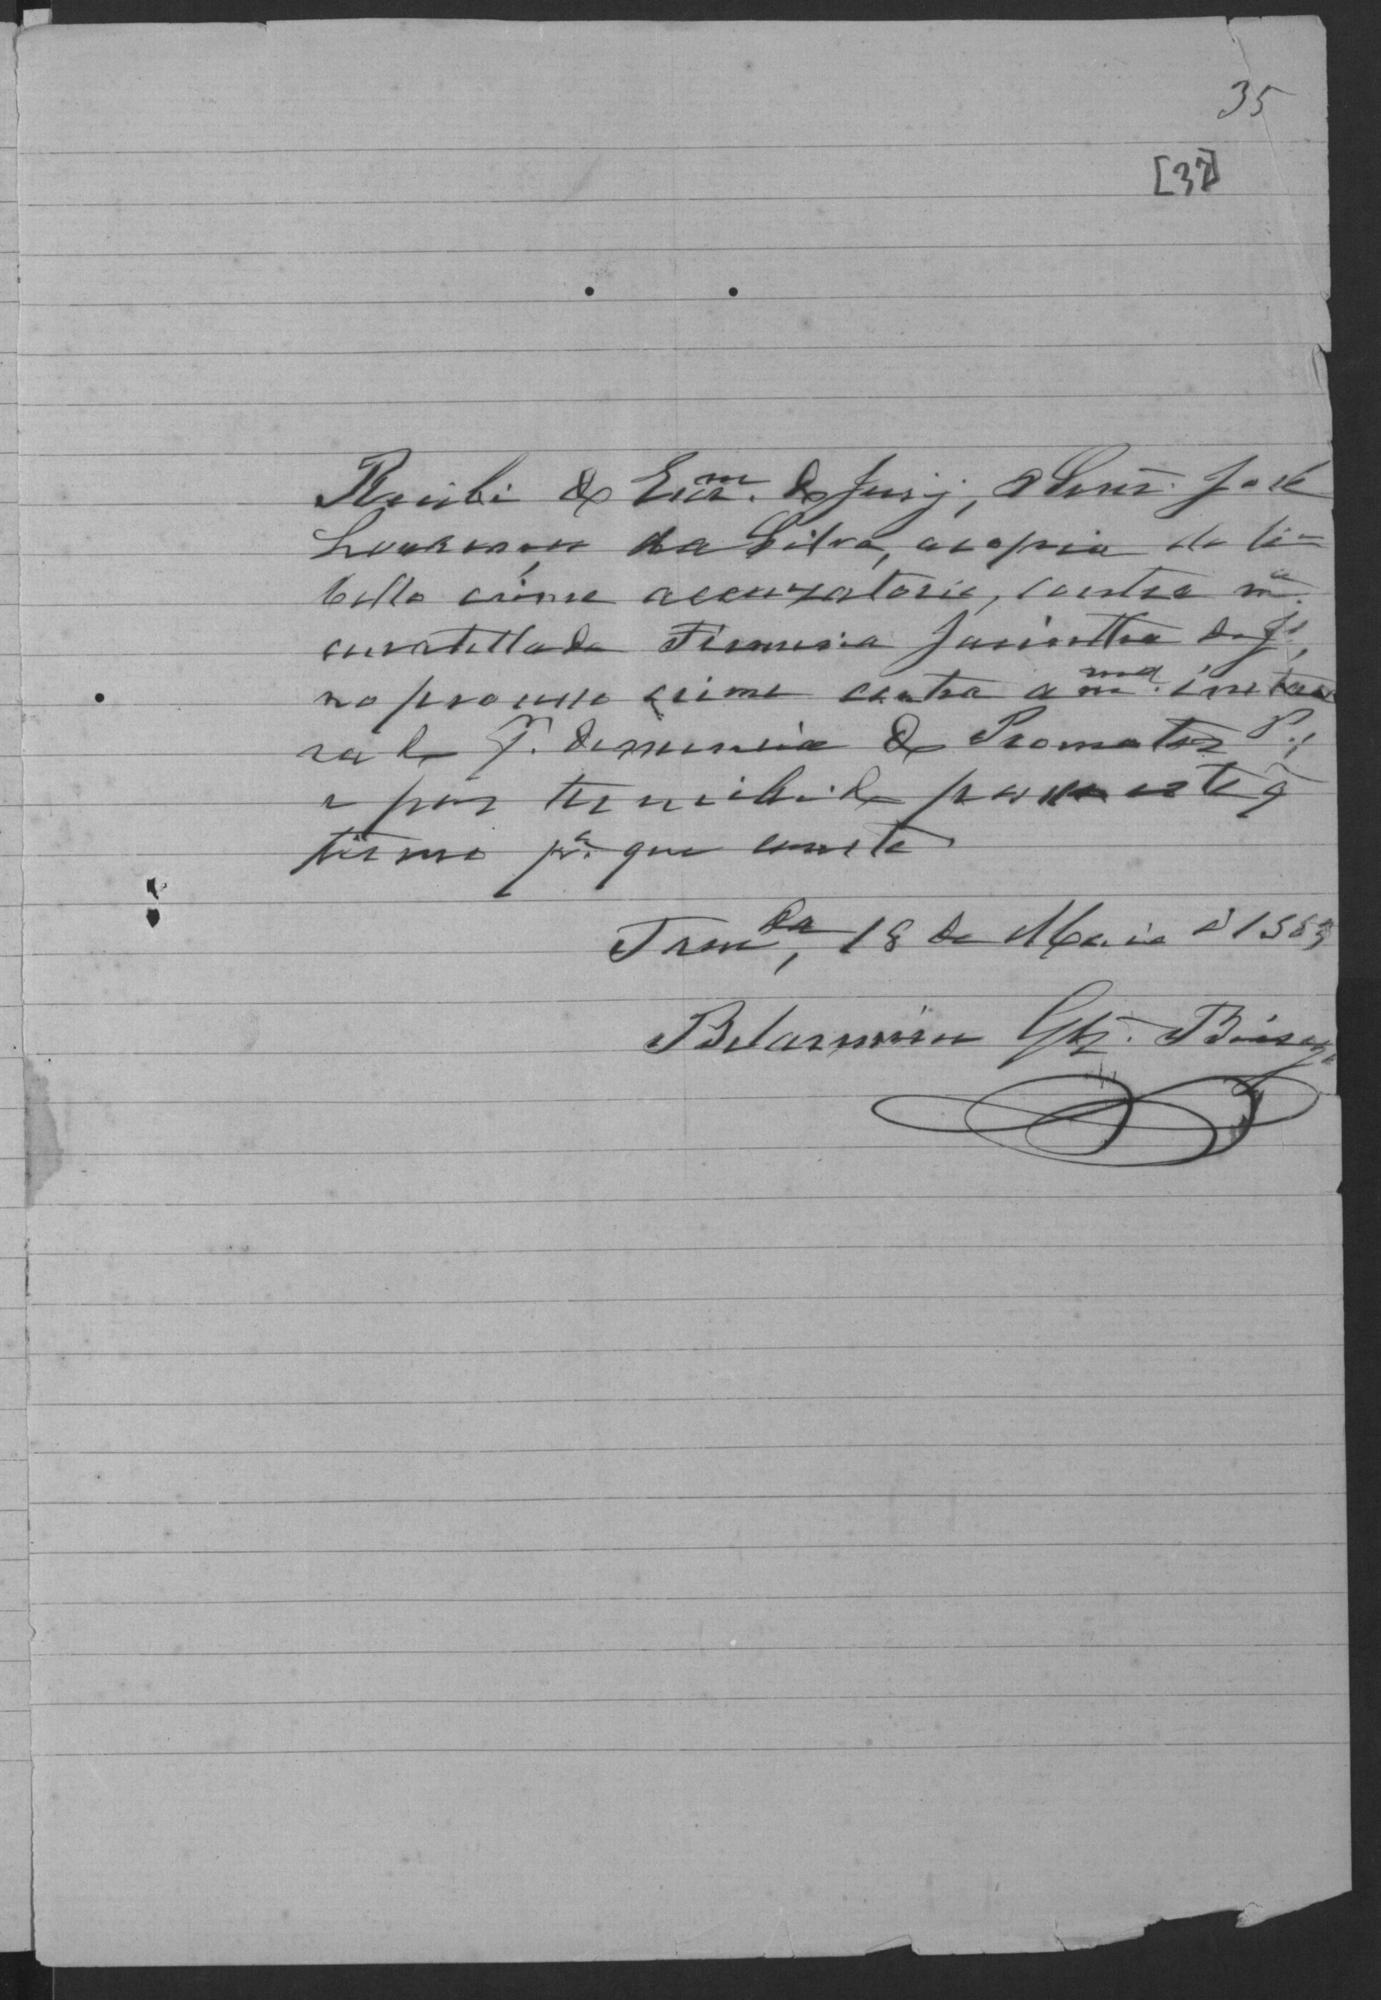 35
[37]
Recibi do Escm. do Jury, o Senr. José
da Silva, a copia do li-
bello crime accuzatorio, contra ma.
curatellada Firmina Jacintha de Js,
no processo crime contra a mma. instau
rado pr. denuncia do Promotor P.;
e por ter recibido paso este
termo pa. que conste
18 de Maio d 1883
Belarmino Glz.